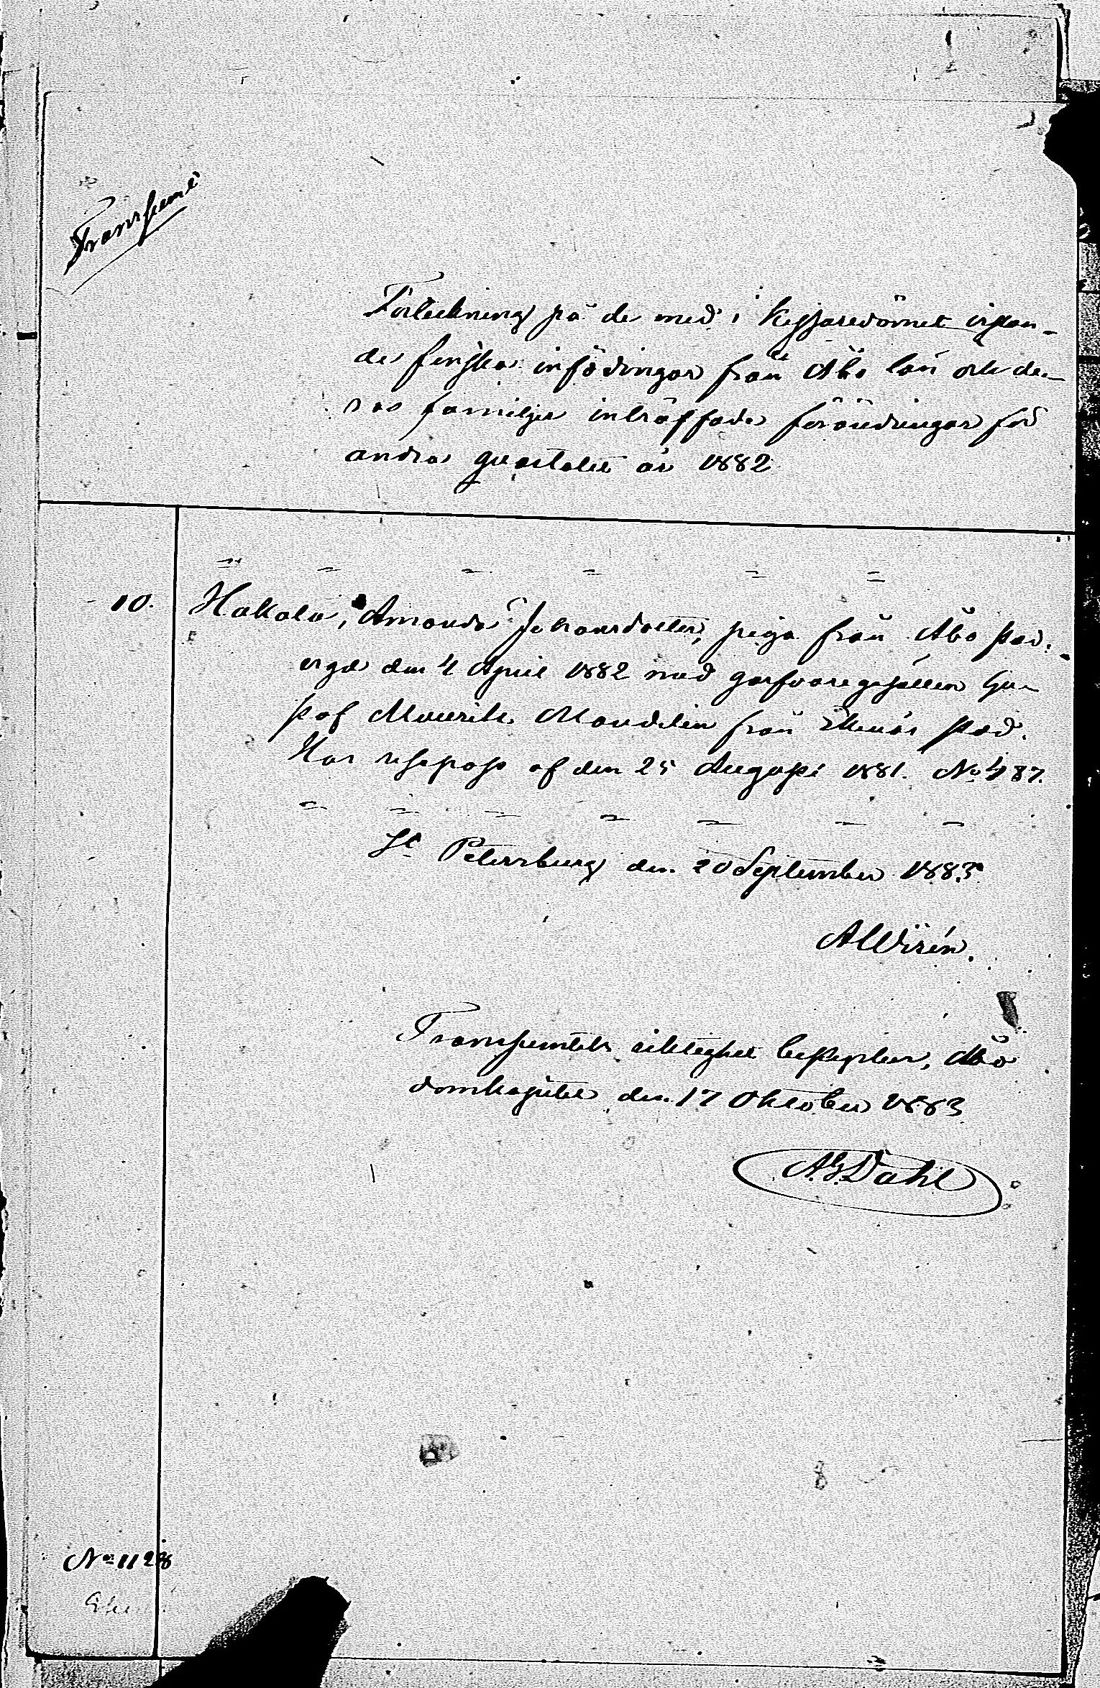 Transsumt
Förteckning på de med i Kejsaredömet vistan-
de finska infödingar från Åbo län och de-
ras familjer inträffade förändringar för
andra quartalet år 1882
10. Hakala, Amanda Johansdotter, piga från Åbo stad.
vigd den 4 April 1882 med garfvaregesällen Gu-
staf Maurits Mandelin från Ekenäs stad.
Har respass af den 25 Augusti 1881. No 487.
St Petersburg den 20 September 1883.
A Wirén.
Transsumtets riktighet bestyrker, Åbo
domkapitel den 17 Oktober 1883
A.G. Dahl
No 1128